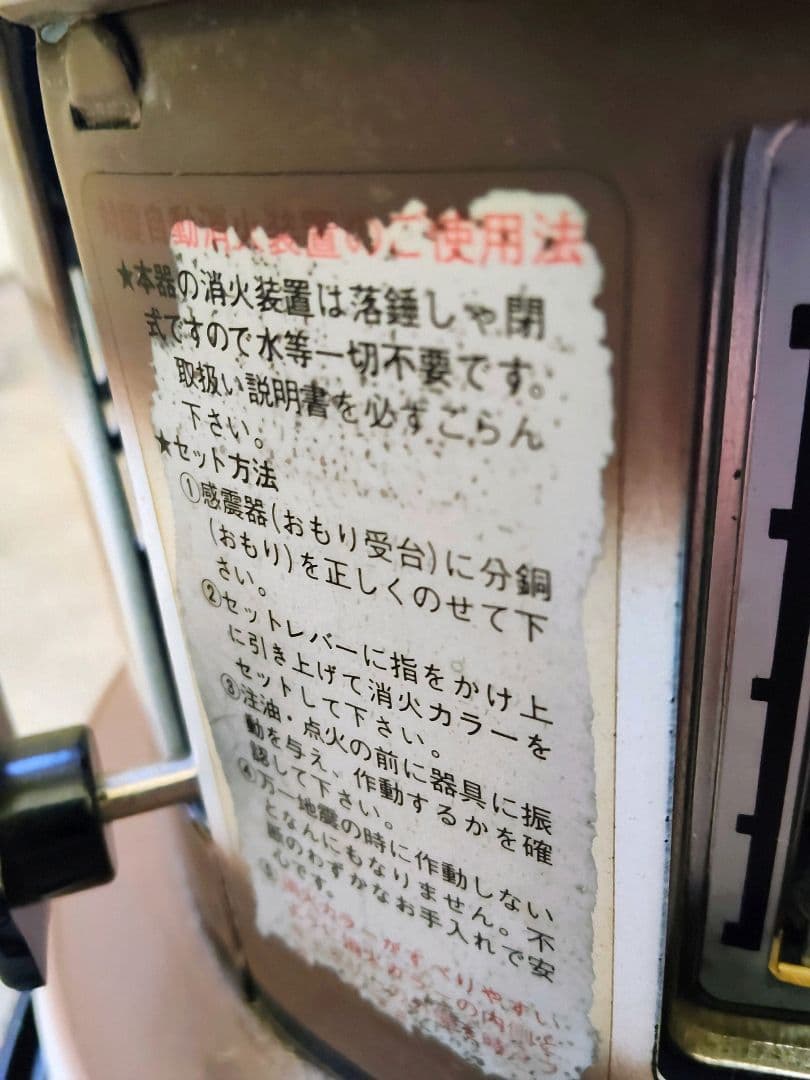 対震自動消火装置のご使用法
★本器の消火装置は落錘しゃ閉
式ですので水等一切不要です。
取扱い説明書を必ずごらん
下さい。
★セット方法
①感震器(おもり受台)に分銅
(おもり)を正しくのせて下
さい。
②セットレバーに指をかけ上
に引き上げて消火カラーを
セットして下さい。
③注油・点火の前に器具に振
動を与え、作動するかを確
認して下さい。
④万一地震の時に作動しない
となんにもなりません。不
断のわずかなお手入れで安
心です。
⑤消火カラーがすべりやすい
消火カラーの内側